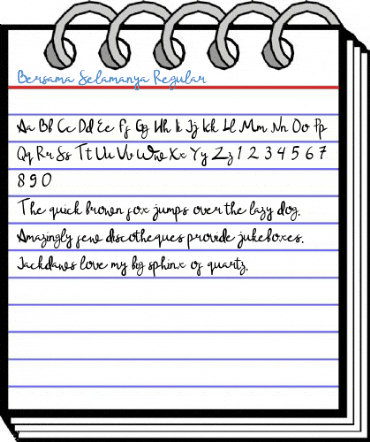 Bersama Selamanya Regular
Aa Bb Cc Dd Ee Ff Gg Hh Ii Jj Kk Ll Mm Nn Oo Pp
Qq Rr Ss Tt Uu Vv Ww Xx Yy Zz 1 2 3 4 5 6 7
8 9 0
The quick brown fox jumps over the lazy dog.
Amazingly few discotheques provide jukeboxes.
Jackdaws love my big sphinx of quartz.